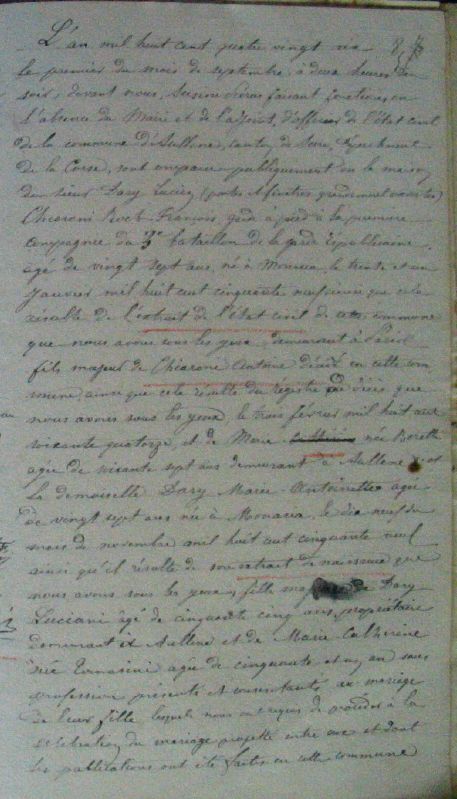 L'an mil huit cent quatre vingt six
le premier du mois de septembre, à deux heures du
soir, devant nous, faisant fonctions, en
l'absence du Maire et de l'adjoint, d'officier de l'état civil
de la commune d'Aullène, canton de Serra, département
de la Corse, sont comparus publiquement en la maison
du sieur Dary Lucien (portes et fenêtres grandement ouvertes)
Chiaroni Roch François, garde à pied à la première
compagnie du 3e bataillon de la garde républicaine
agé de vingt sept ans, né à Monacia, le trente et un
janvier mil huit cent cinquante neuf ainsi que cela
résulte de l'extrait de l'état civil de cette commune
que nous avons sous les yeux, demeurant à Paris
fils majeur de Chiaroni Antoine décédé en cette com
mune, ainsi que cela résulte du registre de décès, que
nous avons sous les yeux, le trois février mil huit cent
soixante quatorze, et de Marie née
agée de soixante sept ans demeurant à Aullène et
La demoiselle Dary Marie Antoinette agée
de vingt sept ans née à Monacia, le dix neuf du
mois de novembre mil huit cent cinquante neuf
ainsi qu'il résulte de son extrait de naissance que
nous avons sous les yeux, fille de Dary
Luciani âgé de cinquante cinq ans, propriétaire
demeurant à Aullène et de Marie Catherine
née Tomasini agée de cinquante et un an sans
profession présents et consentants au mariage
de leur fille lesquels nous ont requis de procéder à la
célébration du mariage projetté entre eux et dont
les publications ont été faites en cette commune